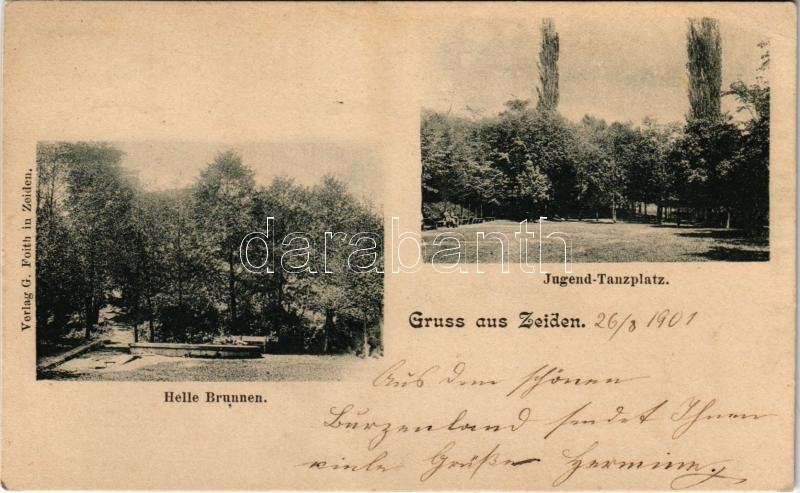 Verlag G. Foith in Zeiden.
Helle Brunnen.
Jugend-Tanzplatz.
Gruss aus Zeiden. 26/8 1901
Aus dem schönen
Burzenland sendet Ihnen
viele Grüße Hermine.
darabanth